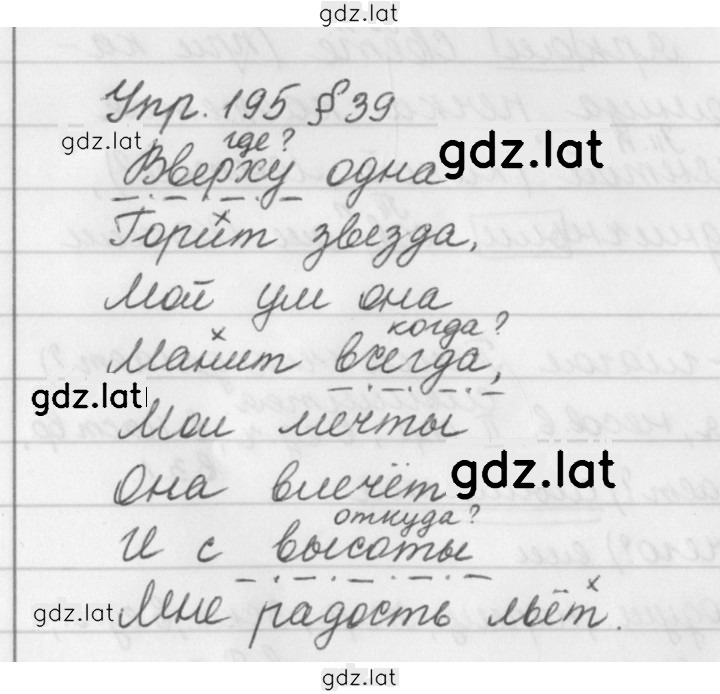 gdz.lat
Упр. 195 § 39
gdz.lat
где?
gdz.lat
Вверху одна
Горит звезда,
Мой ум она
когда?
Манит всегда,
gdz.lat
Мои мечты
gdz.lat
Она влечёт
откуда?
И с высоты
gdz.lat
Мне радость льёт.
gdz.lat